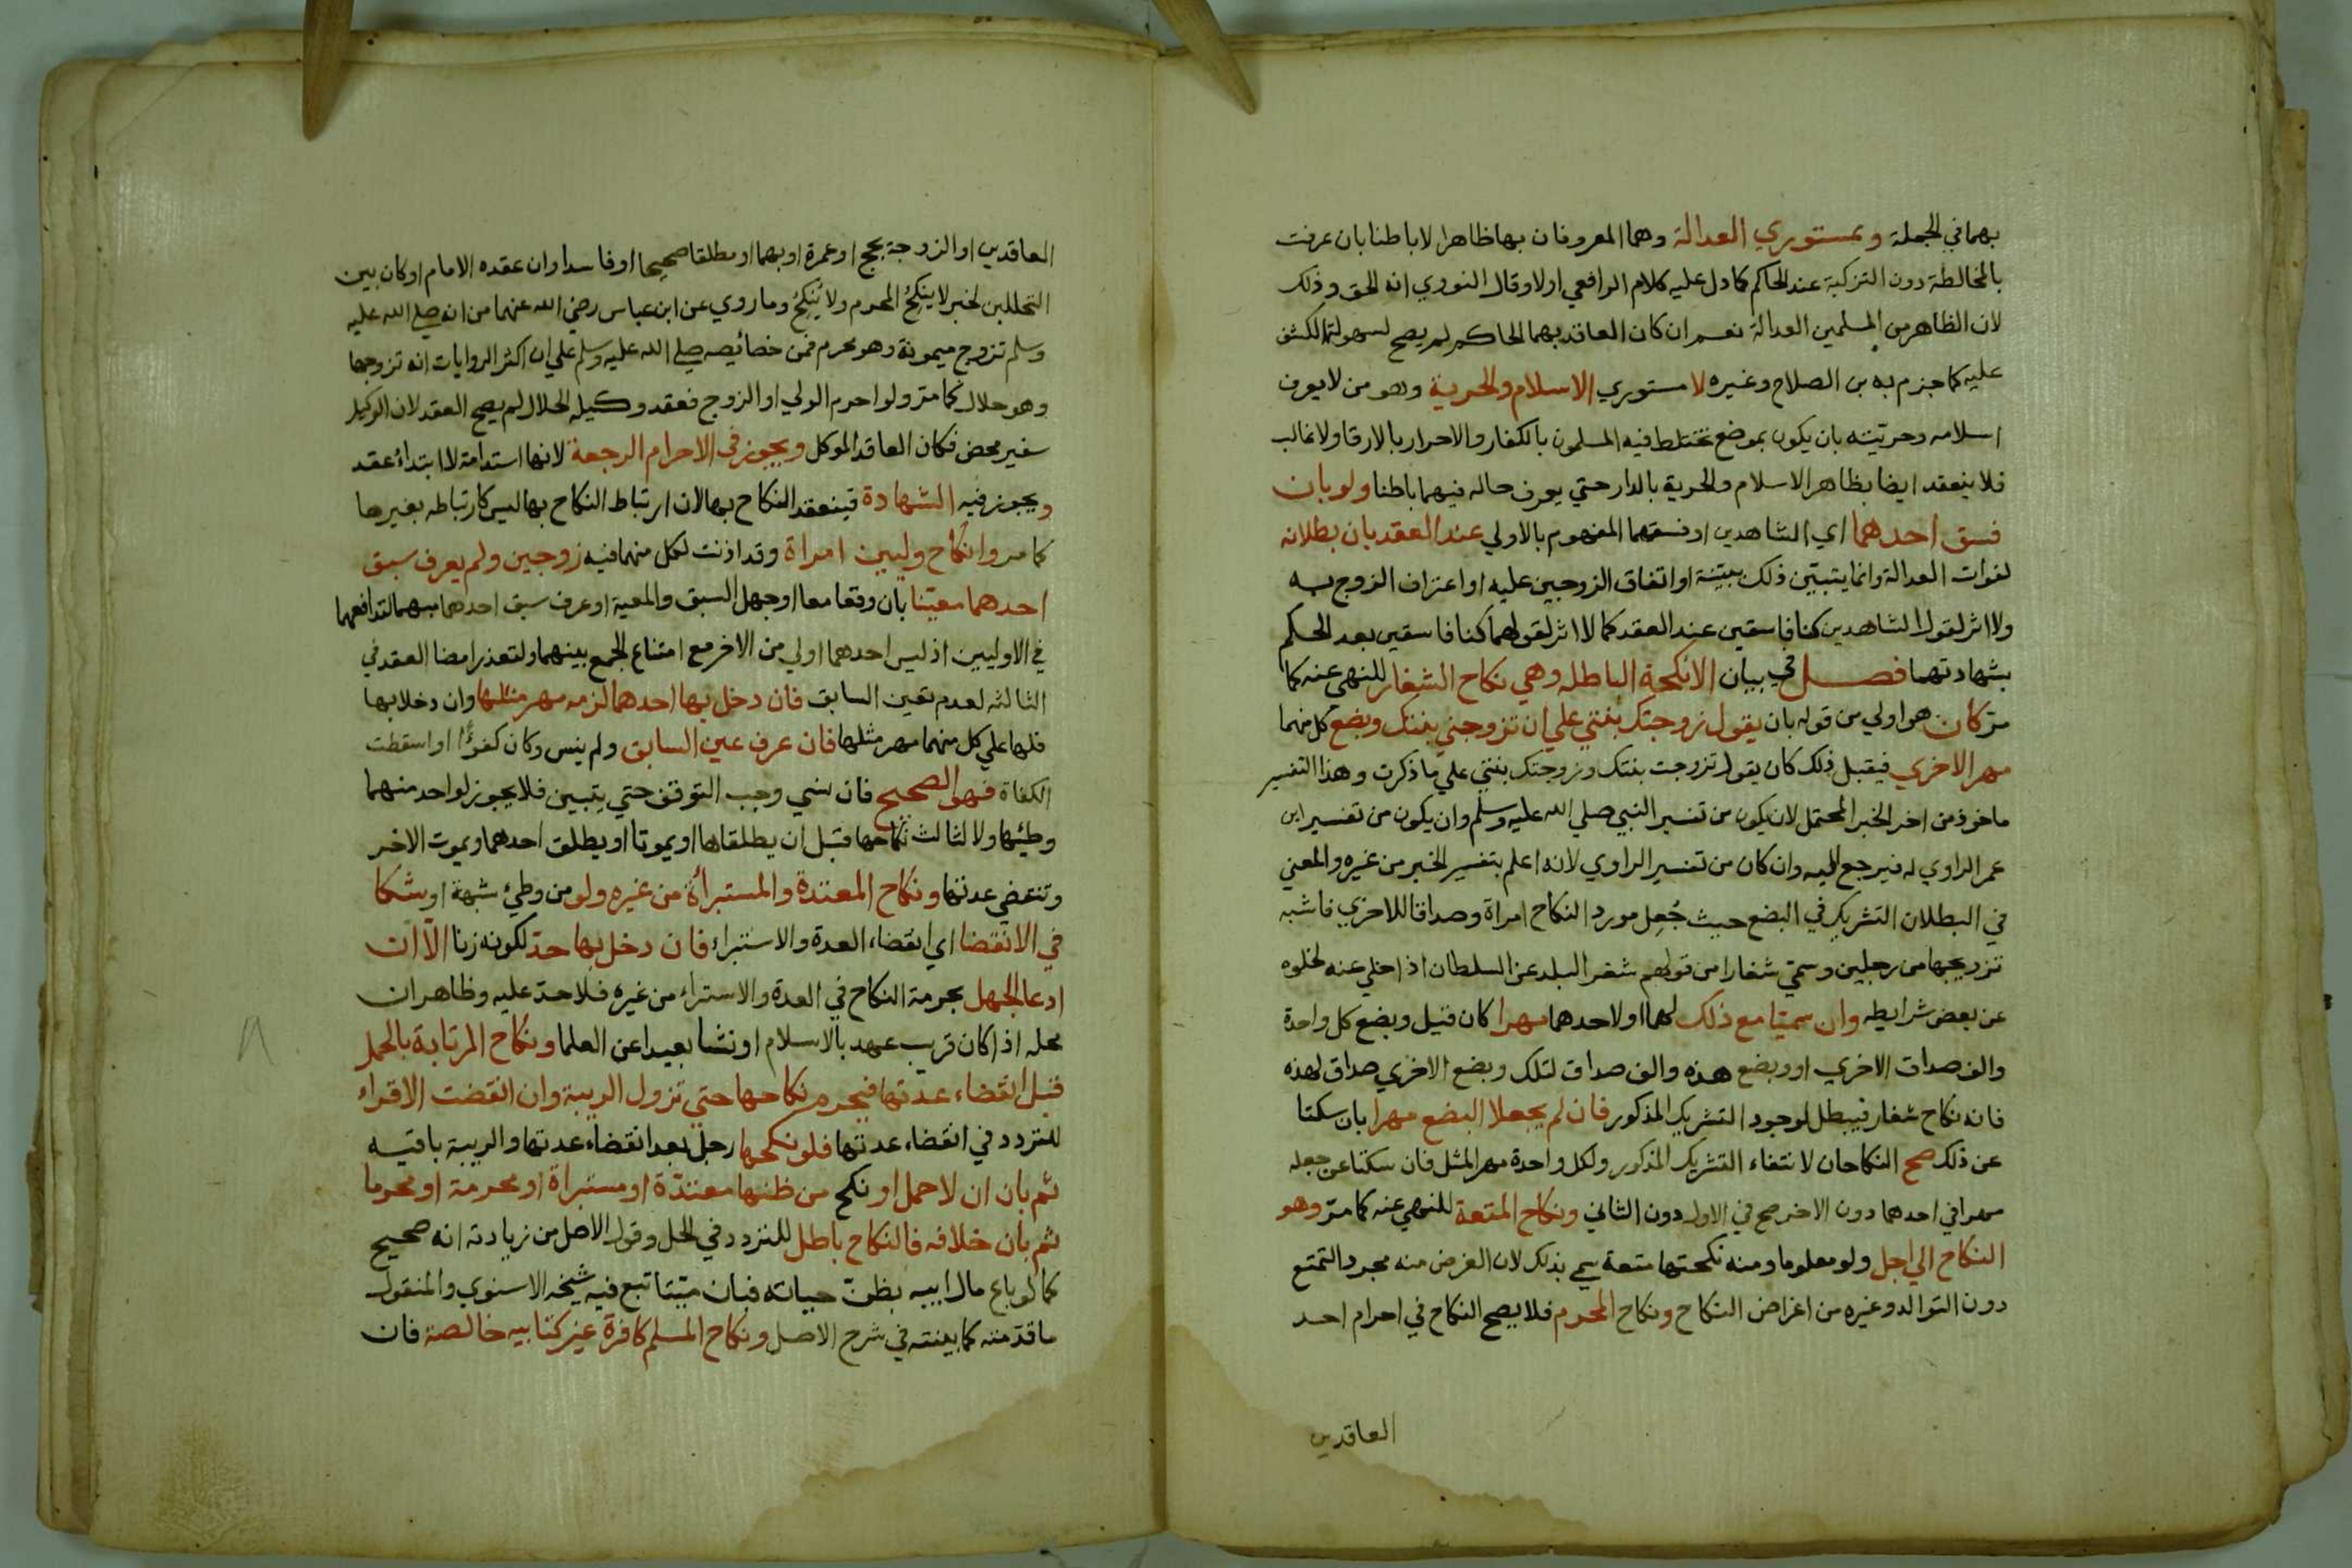 بهما في الجملة وبمستوري العدالة وهما المعروفان بها ظاهرا لا باطنا بان عرفت
بالمخالطة دون التزكية عند الحاكم كما دل عليه كلام الرافعي اولا وقال النووي انه الحق وذلك
لان الظاهر من المسلمين العدالة نعم ان كان العاقد بهما الحاكم لم يصح لسهولتها لكشف
عليه كما جزم به بن الصلاح وغيره لا مستوري الاسلام والحرية وهو من لا يعرف
اسلامه وحريته بان يكون بموضع تختلط فيه المسلمون بالكفار والاحرار بالارقا ولا غالب
فلا ينعقد ايضا بظاهر الاسلام والحرية بالدار حتي يعرف حاله فيهما باطنا ولو بان
فسق احدهما اي الشاهدين او فسقهما المفهوم بالاولي عند العقد بان بطلانه
لفوات العدالة وانما يتبيّن ذلك ببيّنة او اتفاق الزوجين عليه او اعتراف الزوج به
ولا اثر لقول الشاهدين كنا فاسقين عند العقد كما لا اثر لقولهما كنا فاسقين بعد الحكم
بشهادتهما فصل في بيان الانكحة الباطلة وهي نكاح الشغار للنهي عنه كما
مرّ كان هو اولي من قوله بان يقول زوجتك بنتي علي ان تزوجني بنتك وبضع كل منهما
مهر الاخري فيقبل ذلك كان يقول تزوجت بنتك وزوجتك بنتي علي ما ذكرت وهذا التفسير
ماخوذ من اخر الخبر المحتمل لان يكون من تفسير النبي صلي الله عليه وسلم وان يكون من تفسير ابن
عمر الراوي له فيرجع اليه وان كان من تفسير الراوي لانه اعلم بتفسير الخبر من غيره والمعني
في البطلان التشريك في البضع حيث جُعِل مورد النكاح امراة وصداقا للاخري فاشبه
تزويجها من رجلين وسمّي شغارا من قولهم شغر البلد عن السلطان اذا خلي عنه لخلوه
عن بعض شرايطه وان سميّا مع ذلك لهما او لاحدهما مهرا كان قيل وبضع كل واحدة
والف صداق الاخري او وبضع هذه والف صداق لتلك وبضع الاخري صداق لهذه
فانه نكاح شغار فيبطل لوجود التشريك المذكور فان لم يجعلا البضع مهرا بان سكتا
عن ذلك صح النكاحان لانتفاء التشريك المذكور ولكل واحدة مهر المثل فان سكتا عن جعله
مهرا في احدهما دون الاخر صح في الاول دون الثاني ونكاح المتعة للنهي عنه كما مرّ وهو
النكاح الي اجل ولو معلوما ومنه نكحتها متعة سمي بذلك لان الغرض منه مجرد التمتع
دون التوالد وغيره من اغراض النكاح ونكاح المحرم فلا يصح النكاح في احرام احد
العاقدين
العاقدين او الزوجة بحج او عمرة او بهما او مطلقا صحيحا او فاسدا وان عقده الامام او كان بين
التحللين لخبر لا ينكِحُ المحرم ولا يُنكِحُ وما روي عن ابن عباس رضي الله عنهما من انه صلي الله عليه
وسلم تزوج ميمونة وهو محرم فمن خصائصه صلي الله عليه وسلم علي ان اكثر الروايات انه تزوجها
وهو حلال كما مرّ ولو احرم الولي او الزوج فعقد وكيله الحلال لم يصح العقد لان الوكيل
سفير محض فكان العاقد الموكل ويجوز في الاحرام الرجعة لانها استدامة لا ابتداء عقد
ويجوز فيه الشهادة فينعقد النكاح بها لان ارتباط النكاح بها ليس كارتباطه بغيرها
كما مر وانكاح وليين امراة وقد اذنت لكل منهما فيه زوجين ولم يعرف سبق
احدهما معيّنا بان وقعا معا او جهل السبق والمعية او عرف سبق احدهما مبهما لتدافعهما
في الاوليين اذ ليس احدهما اولي من الاخر مع امتناع الجمع بينهما ولتعذر امضا العقد في
الثالثه لعدم تعين السابق فان دخل بها احدهما لزمه مهر مثلها وان دخلا بها
فلها علي كل منهما مهر مثلها فان عرف عين السابق ولم ينس وكان كفوًا او اسقطت
الكفاة فهو الصحيح فان نسي وجب التوقف حتي يتبين فلا يجوز لواحد منهما
وطئها ولا لثالث نكاحها قبل ان يطلقاها او يموتا او يطلق احدهما ويموت الاخر
وتنقضي عدتها ونكاح المعتدة والمستبراة من غيره ولو من وطئ شبهة او شكا
في الانقضا اي انقضاء العدة والاستبراء فان دخل بها حدّ لكونه زنا الّا ان
ادعا الجهل بحرمة النكاح في العدة والاستراء من غيره فلا حدّ عليه وظاهر ان
محله اذا كان قريب عهد بالاسلام او نشا بعيدا عن العلما ونكاح المرتابة بالحمل
قبل انقضاء عدتها فيحرم نكاحها حتي تزول الريبة وان انقضت الاقراء
للتردد في انقضاء عدتها فلو نكحها رجل بعد انقضاء عدتها والريبة باقيه
ثم بان ان لا حمل او نكح من ظنها معتدّة او مستبراة او محرمة او محرما
ثم بان خلافه فالنكاح باطل للتردد في الحل وقول الاصل من زيادته انه صحيح
كما لو باع مال ابيه بظنّ حياته فبان ميّتا تبع فيه شيخه الاسنوي والمنقول
ما قدّمته كما بينته في شرح الاصل ونكاح المسلم كافرة غير كتابيه خالصة فان